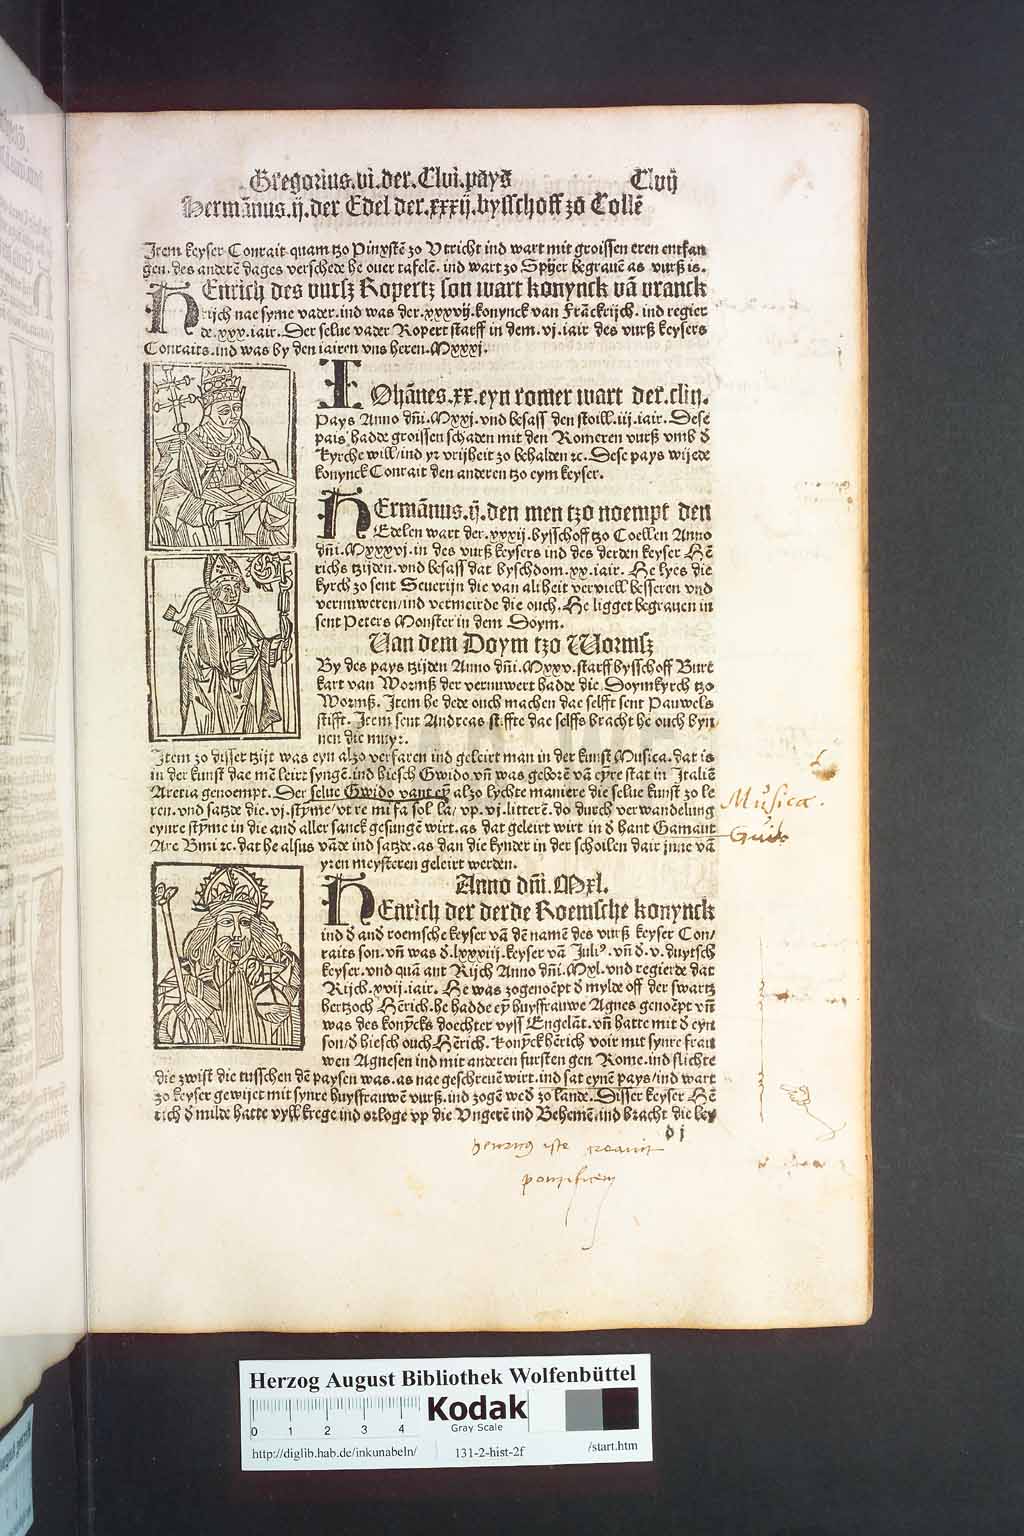 Gregorius.vi.der.Clvi.pays Clvij
Hermānus.ij.der Edel der.xxxij.bysschoff zo Collē
Item keyser Conrait quam tzo Pinxstē zo Vtricht ind wart mit groissen eren entfan
gen. des anderē dages verschede he ouer tafelē. ind wart zo Spijer begrauē as vurß is.
HEnrich des vurß Ropertz son wart konynck vā vranck
rijch nae syme vader. ind was der.xxxvij.konynck van Frāckrijch. ind regier
de.xxx.iair. Der selue vader Ropert starff in dem.vj.iair des vurß keysers
Conraits.ind was by den iairen vns heren.Mxxxj.
IOhānes.xx.eyn romer wart der.clij.
Pays Anno dñi.Mxxj.vnd besass den stoill.iij.iair. Dese
pais hadde groissen schaden mit den Romeren vurß vmb d
kyrche will/ind yr vrijheit zo behalden ꝛc. Dese pays wijede
konynck Conrait den anderen tzo eym keyser.
HErmānus.ij.den men tzo noempt den
Edelen wart der.xxxij.bysschoff tzo Coellen Anno
dñi.Mxxxvj.in des vurß keysers ind des derden keyser Hē
richs tzijden.vnd besass dat byschdom.xx.iair. He lyes die
kyrch zo sent Seuerijn die van altheit verviell besseren vnd
vernuweren/ind vermeirde die ouch. He ligget begrauen in
sent Peters Monster in dem Doym.
Van dem Doym tzo Wormß
By des pays tzijden Anno dñi.Mxxv.starff bysschoff Burc
kart van Wormß der vernuwert hadde die Doymkyrch tzo
Wormß. Item he dede ouch machen dae selfft sent Pauwels
stifft. Item sent Andreas stiffte dae selffs bracht he ouch byn
nen die muyr.
Item zo disser tzijt was eyn alzo verfaren ind geleirt man in der kunst Musica.dat is
in der kunst dae mē leirt syngē.ind hiesch Gwido.vñ was geborē vā eyre stat in Italiē
Aretia genoempt. Der selue Gwido vant eȳ alzo lychte maniere die selue kunst zo le
ren.vnd satzde die.vj.stȳme/vt re mi fa sol la/vp.vj.litterē.do durch verwandelung
eynre stȳme in die and aller sanck gesungē wirt.as dat geleirt wirt in d hant Gamaut
Are Bmi ꝛc.dat he alsus vāde ind satzde.as dan die kynder in der schoilen dair inne vā
yren meysteren geleirt werden.
Musica.
Guido
Anno dñi.Mxl.
HEnrich der derde Roemsche konynck
ind d and roemsche keyser vā dē namē des vurß keyser Con/
raits son.vñ was d.lxxxiij.keyser vā Juli⁹.vñ d.v.duytsch
keyser.vnd quā ant Rijch Anno dñi.Mxl.vnd regierde dat
Rijch.xvij.iair. He was zogenoēpt d mylde off der swartz
hertzoch Hērich.he hadde eȳ huysfrauwe Agnes genoēpt vñ
was des konȳcks doechter vyss Engelāt.vñ hatte mit d eyn
son/d hiesch ouch Hērich. Konȳckhērich voir mit synre frau
wen Agnesen ind mit anderen fursten gen Rome.ind slichte
die zwist die tusschen dē paysen was.as nae geschreuē wirt.ind sat eynē pays/ind wart
zo keyser gewijet mit synre huysfrauwen vurß.ind zogē wed zo lande. Disser keyser Hē
rich d milde hatte vyll krege ind orloge vp die Vngerē ind Behemē.ind bracht die bey
henricus iste creauit
pontificem
Herzog August Bibliothek Wolfenbüttel
0 1 2 3 4
Kodak
Gray Scale
http://diglib.hab.de/inkunabeln/ 131-2-hist-2f /start.htm